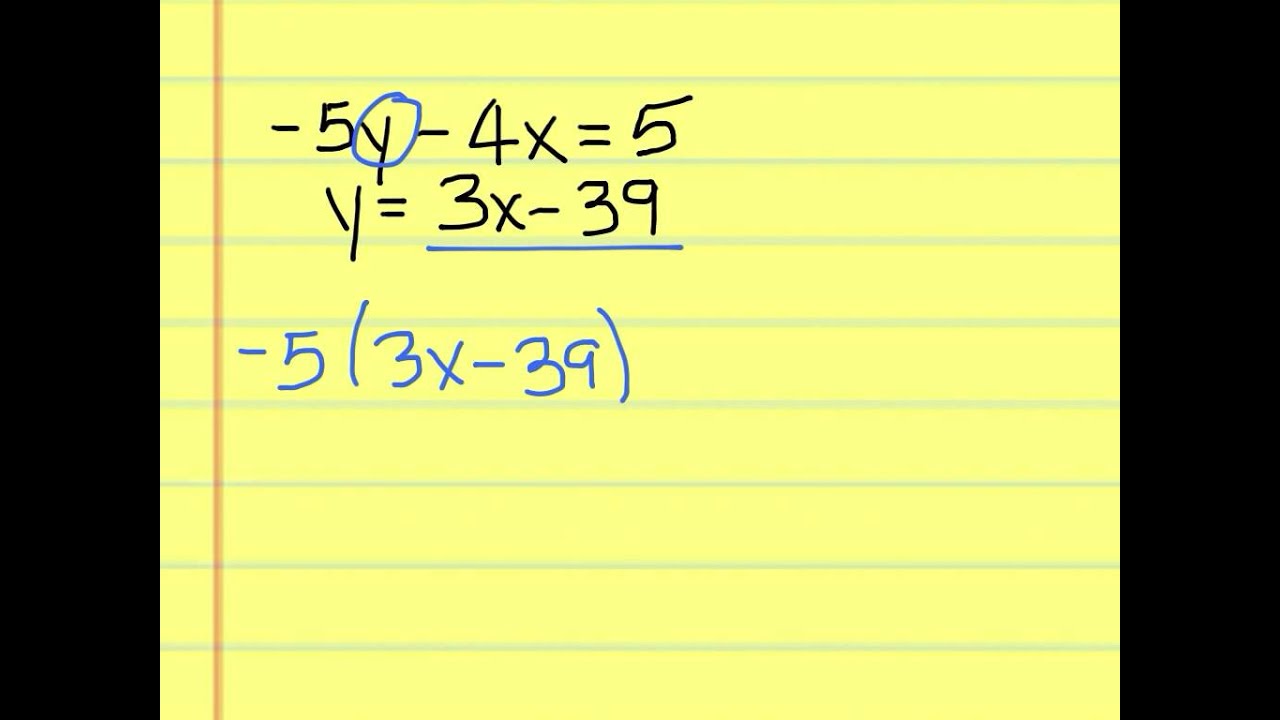 -5y - 4x = 5
y = 3x - 39
-5(3x - 39)